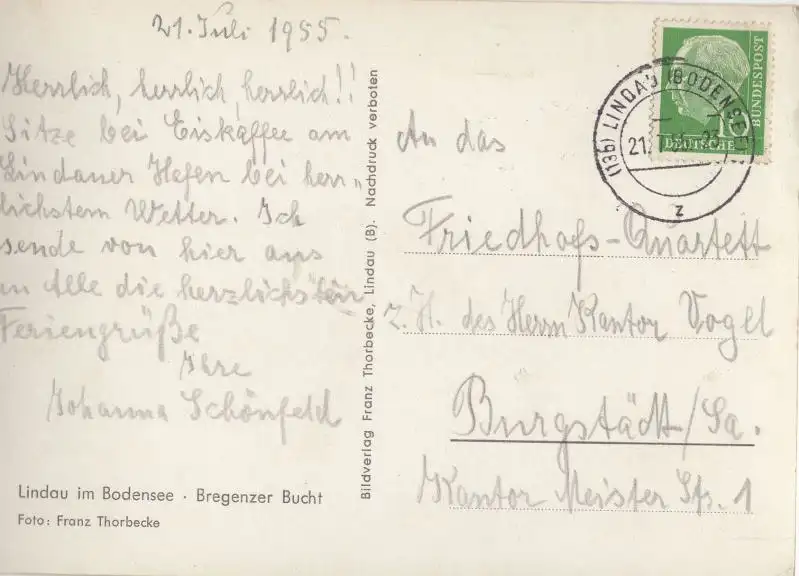 21. Juli 1955.
Herrlich, herrlich, herrlich!!
Sitze bei Eiskaffee am
Lindauer Hafen bei herr„
lichstem Wetter. Ich
sende von hier aus
an Alle die herzlichsten
Feriengrüße
Ihre
Johanna Schönfeld
Lindau im Bodensee · Bregenzer Bucht
Foto: Franz Thorbecke
Bildverlag Franz Thorbecke, Lindau (B). Nachdruck verboten
(13b) LINDAU (BODENSEE)
21.7.55
z
10
DEUTSCHE
BUNDESPOST
An das
Friedhofs-Quartett
z. H. des Herrn Kantor Vogel
Burgstädt/Sa.
Kantor Meister